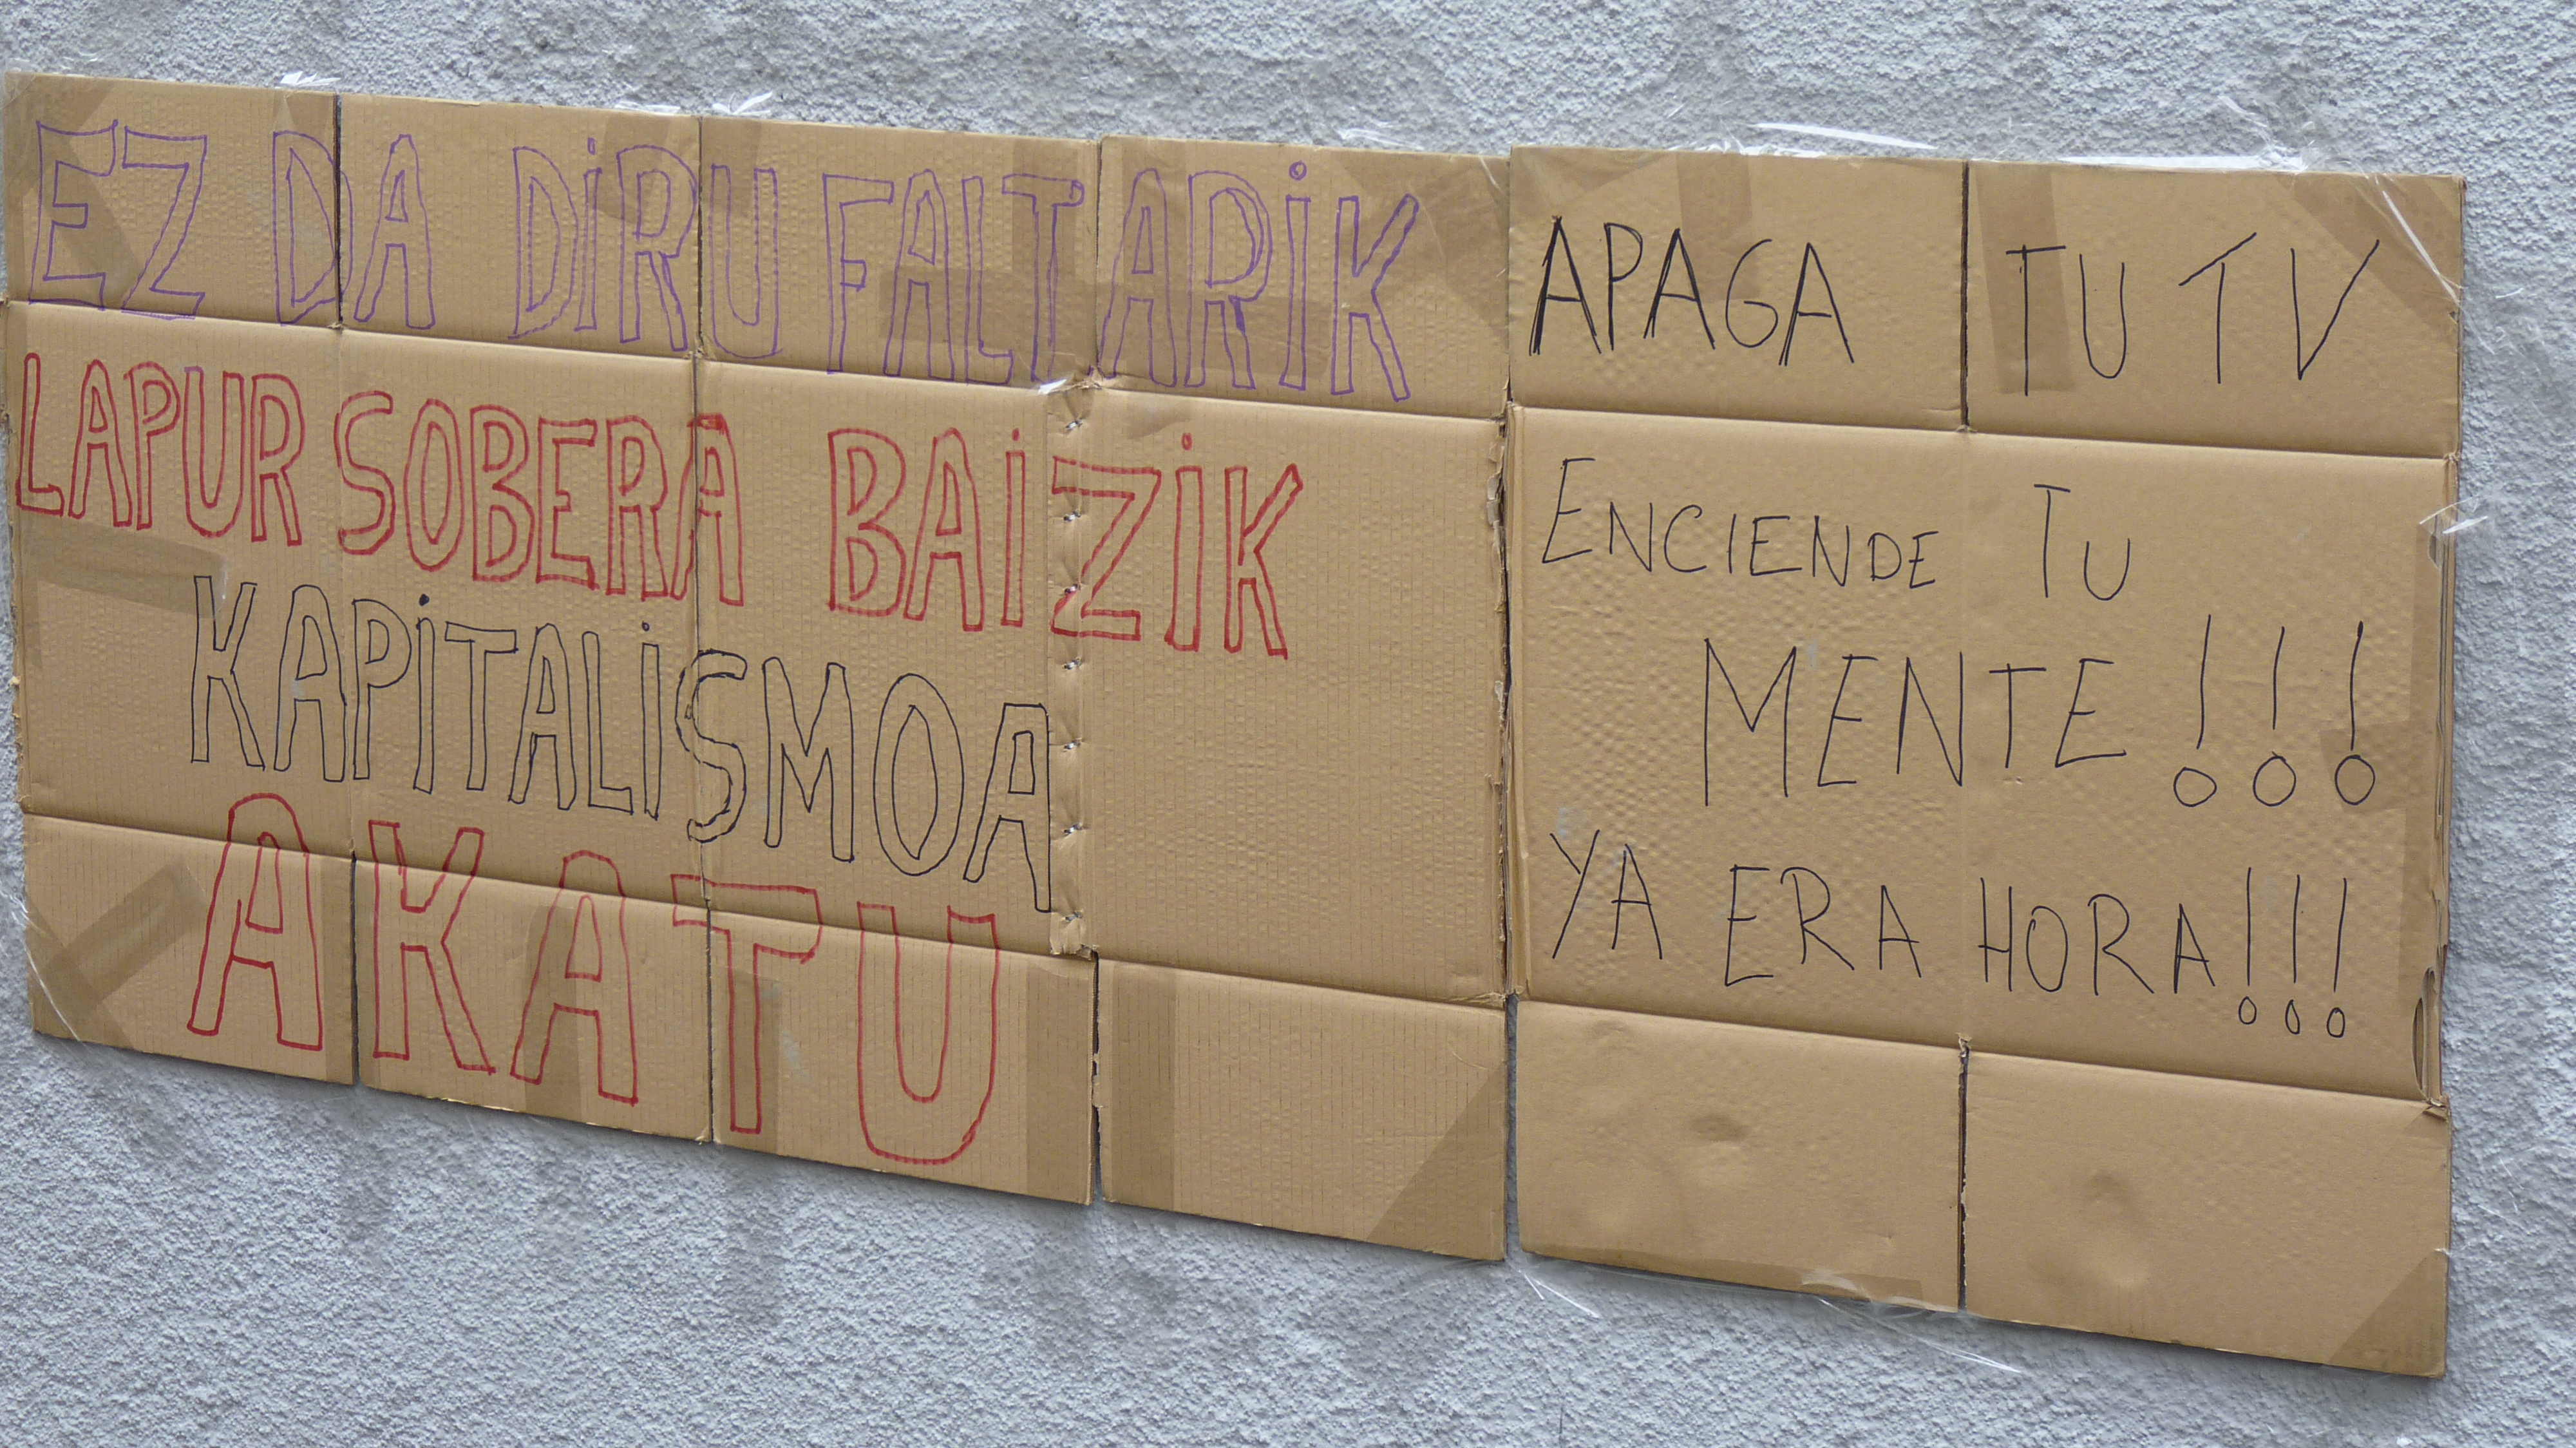 EZ DA DIRU FALTARIK
LAPUR SOBERA BAIZIK
KAPITALISMOA
AKATU
APAGA TU TV
ENCIENDE TU
MENTE!!!
YA ERA HORA!!!